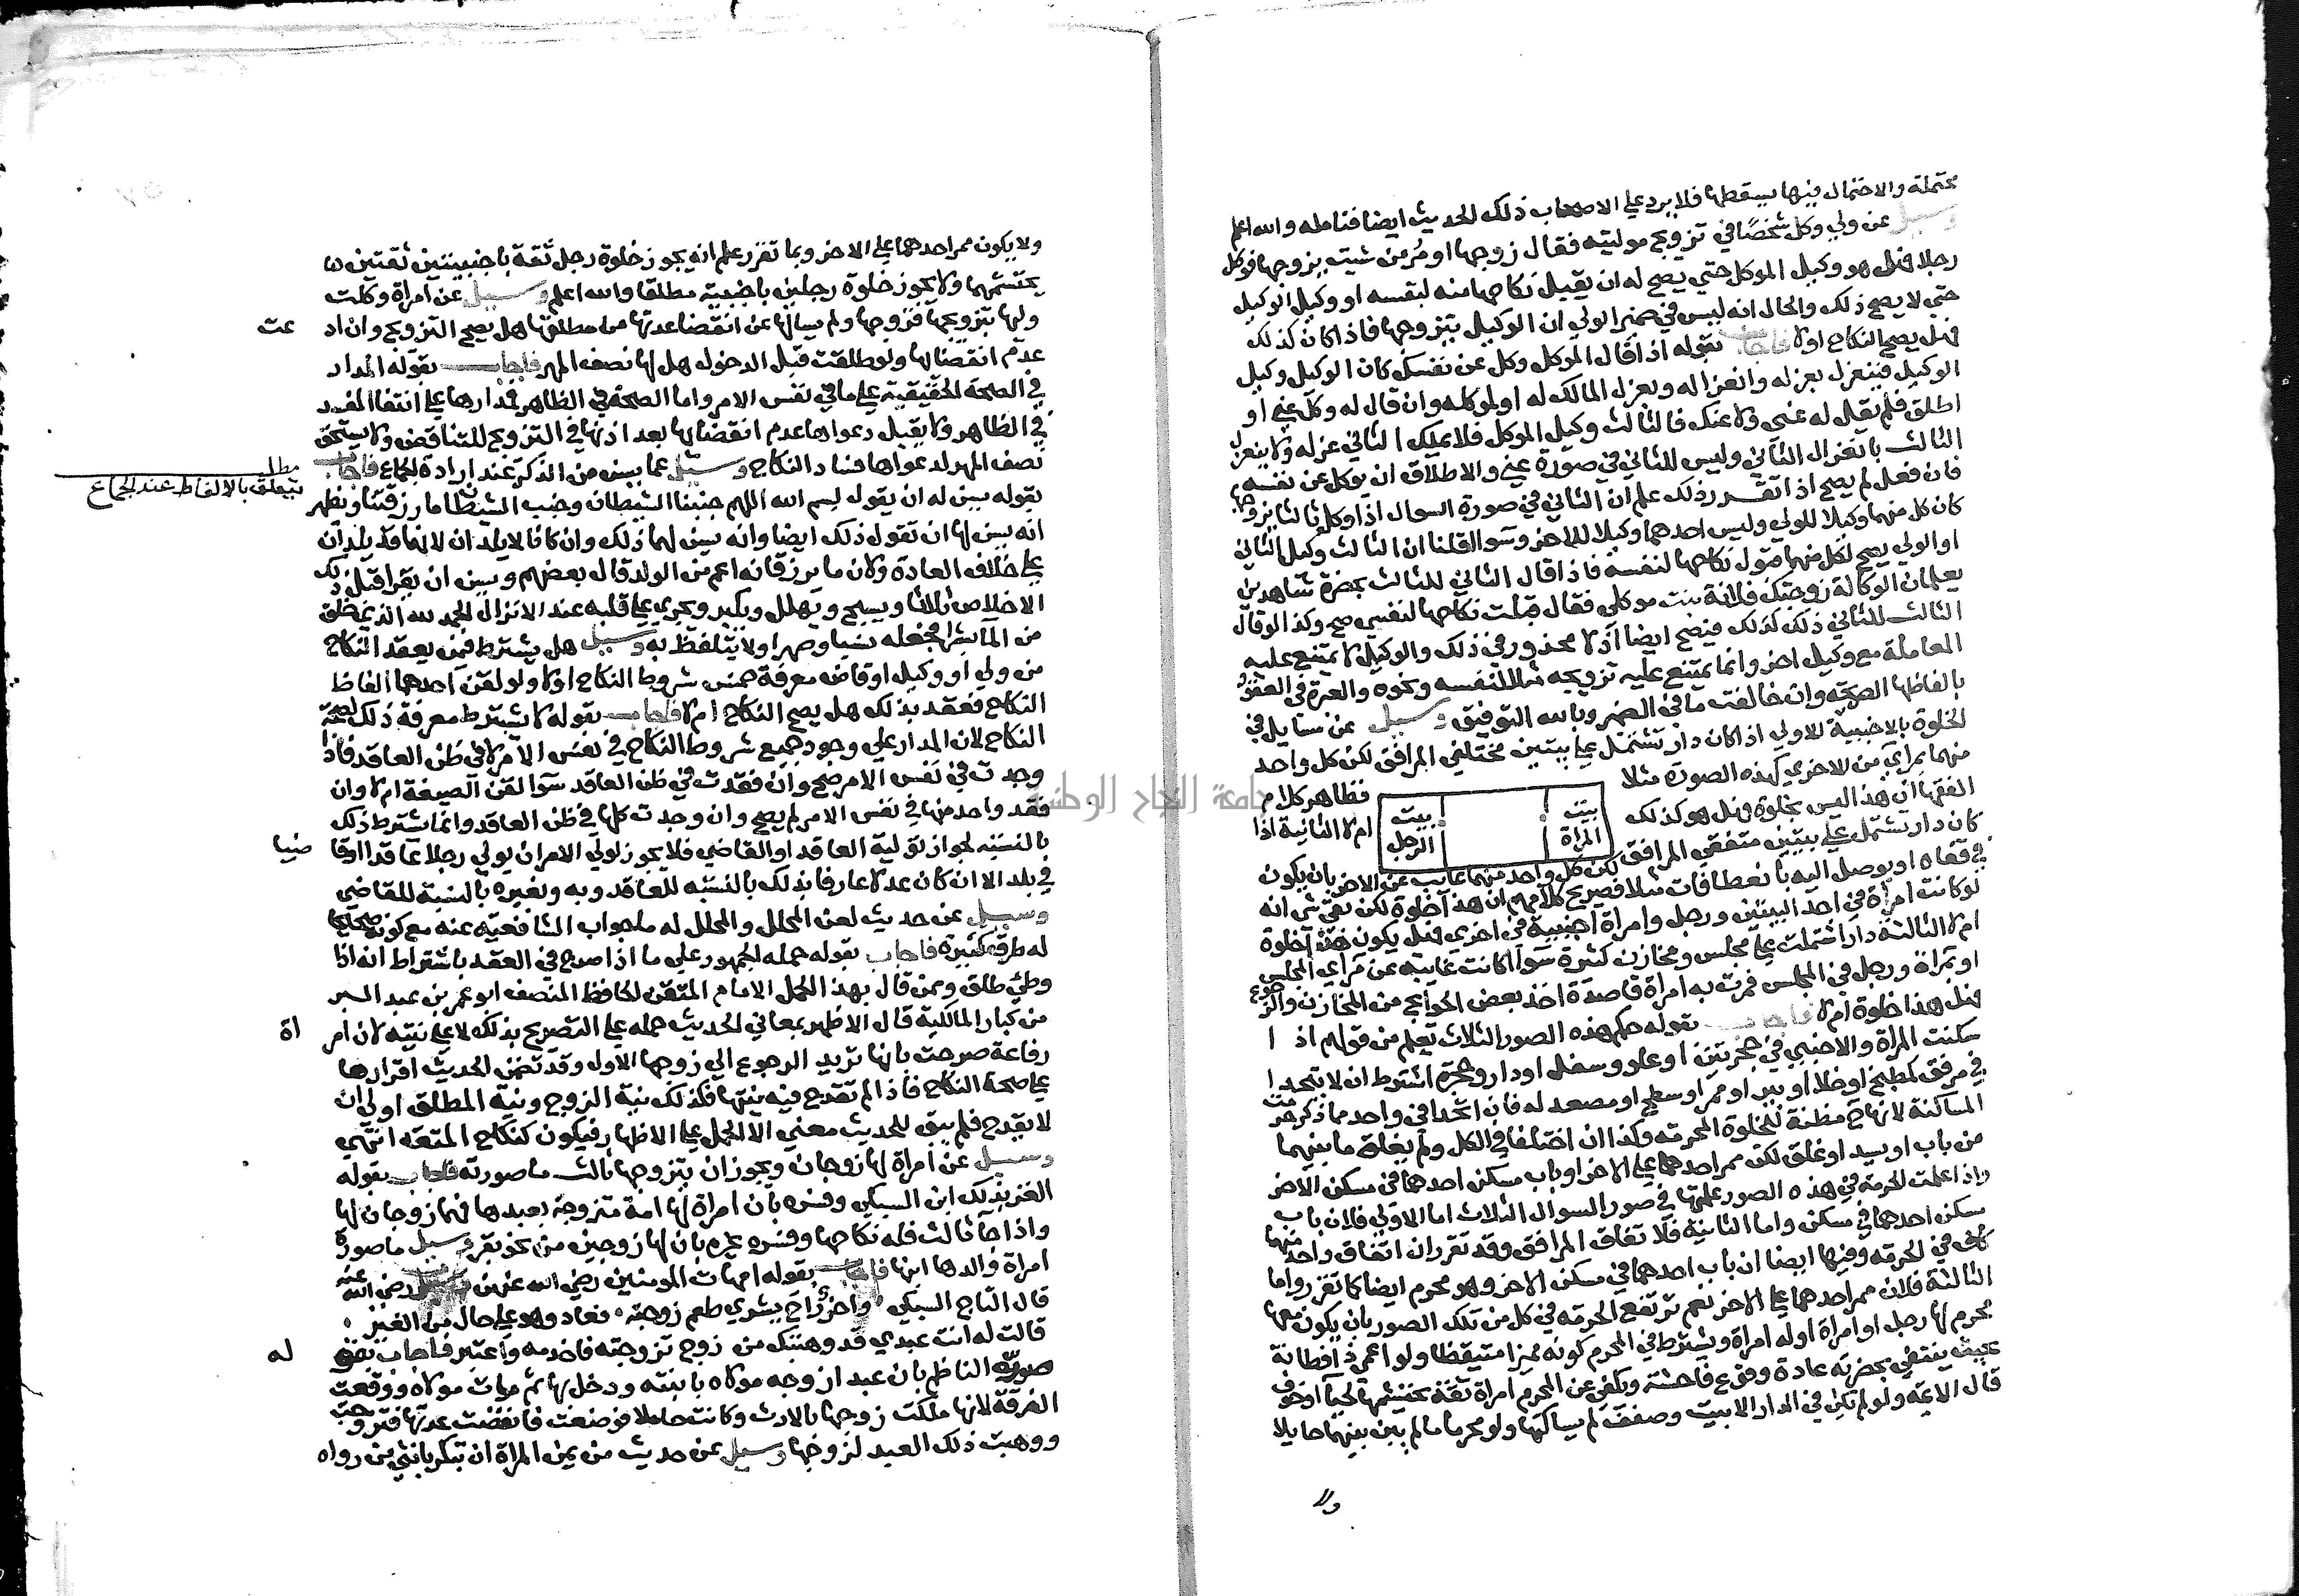 محتملة والاحتمال فيها يسقطها فلا يرد على الاصحاب ذلك الحديث ايضا فتامله والله اعلم
وسيل عن ولي وكل شخصًا في تزويج موليته فقال زوجها او مُر من شيت يزوجها فوكل
رجلا فهل هو وكيل الموكل حتي يصح له ان يقبل نكاحها منه لنفسه او وكيل الوكيل
حتي لا يصح ذلك والحال انه ليس في ضمير الولي ان الوكيل يتزوجها فاذا كان كذلك
فهل يصح النكاح اولا فاجاب بقوله اذا قال الموكل وكل عن نفسك كان الوكيل وكيل
الوكيل فينعزل بعزله وانعزاله وبعزل المالك له او لموكله وان قال له وكل عني او
اطلق فلم يقل له عني ولا عنك فالثالث وكيل الموكل فلا يملك الثاني عزله ولا ينعزل
الثالث بانعزال الثاني وليس للثاني في صورة عني والاطلاق ان يوكل عن نفسه
فان فعل لم يصح اذا تقرر ذلك علم ان الثاني في صورة السوال اذا وكل ثالثا يزوجها
كان كل منهما وكيلا للولي وليس احدهما وكيلا للاخر وسوا قلنا ان الثالث وكيل الثاني
او الولي يصح لكل منهما قبول نكاحها لنفسه فاذا قال الثاني للثالث بحضرة شاهدين
يعلمان الوكالة زوجتك فلانة بنت موكلي فقال قبلت نكاحها لنفسي صح وكذا لو قال
الثالث للثاني ذلك كذلك فيصح ايضا اذ لا محذور في ذلك والوكيل لا يمتنع عليه
المعاملة مع وكيل اخر وانما يمتنع عليه تزويجه مثلا لنفسه ونحوه والعبرة في العقود
بالفاظها الصريحة وان خالفت ما في الضمير وبالله التوفيق وسيل عن مسايل في
الخلوة بالاجنبية الاولي اذا كان دار تشتمل علي بيتين مختلفي المرافق لكن كل واحد
منهما بمراي من الاخري كهذه الصورة مثلا
بيت المراة
بيت الرجل
فظاهر كلام
الفقها ان هذا ليس بخلوة فهل هو كذلك
ام لا الثانية اذا
كان دار تشتمل علي بيتين متفقي المرافق لكن كل واحد منهما غايب عن الاخر بان يكون
في قفاه او يوصل اليه بانعطافات مثلا فصريح كلامهم ان هذا خلوة لكن بقي شي انه
لو كانت امراة في احد البيتين ورجل وامراة اجنبية في اخري فهل يكون هذا خلوة
ام لا الثالثة دار اشتملت علي مجلس ومخازن كثيرة سوا كانت غايبة عن مراي المجلس
او بمراة ورجل في المجلس فمرت به امراة قاصدة اخذ بعض الحوايج من المخازن والرجوع
فهل هذا خلوة ام لا فاجاب بقوله حكم هذه الصور الثلاث يعلم من قولهم اذا
سكنت المراة والاجنبي في حجرتين او علو وسفل او دار وحجرة اشترط ان لا يتحدا
في مرفق كمطبخ او خلا او بير او ممر او سطح او مصعد له فان اتحدا في واحد مما ذكر حرمت
المساكنة لانها ح مظنة للخلوة المحرمه وكذا ان اختلفا في الكل ولم يغلق ما بينهما
من باب او يسد او غلق لكن ممر احدهما علي الاخر او باب مسكن احدهما في مسكن الاخر
واذا علمت الحرمة في هذه الصور علمتها في صور السوال الثلاث اما الاولي فلان باب
مسكن احدهما في مسكن واما الثانية فلا تفاق المرافق وقد تقرر ان اتفاق واحد منها
كاف في الحرمه وفيها ايضا ان باب احدهما في مسكن الاخر وهو محرم ايضا كما تقرر واما
الثالثة فلان ممر احدهما علي الاخر نعم ترتفع الحرمة في كل من تلك الصور بان يكون معها
محرم لها رجل او امراة اوله امراة ويشترط في المحرم كونه مميزا متيقظا ولو اعمي ذا فطانة
بحيث ينتفي بحضرته عادة وقوع فاحشة ويكفي عن المحرم امراة ثقة يحتشمها لحيا او خوف
قال الايمه ولو لم تكن في الدار الا بيت وصفف لم يساكنها ولو محرما ما لم يبن بينهما حايلا
ولا
ولا يكون ممر احدهما علي الاخر وبما تقرر علم انه يجوز خلوة رجل ثقة باجنبيتين ثقتين لا
يحتشمهما ولا يجوز خلوة رجلين باجنبية مطلقا والله اعلم وسيل عن امراة وكلت
وليها بتزويجها فزوجها ولم يسالها عن انقضا عدتها من مطلقها هل يصح التزويج وان اد عت
عدم انقضايها ولو طلقت قبل الدخول هل لها نصف المهر فاجاب بقوله المدار
في الصحة الحقيقية علي ما في نفس الامر واما الصحة في الظاهر فمدارها علي انتفا المفسد
في الظاهر ولا يقبل دعواها عدم انقضايها بعد اذنها في التزويج للتناقض ولا يستحق
نصف المهر لدعواها فساد النكاح وسيل عما يسن من الذكر عند ارادة الجماع فاجاب
مطلب
يتعلق بالالفاظ عند الجماع
بقوله يسن له ان يقول بسم الله اللهم جنبنا الشيطان وجنب الشيطان ما رزقتنا ويظهر
انه يسن لها ان تقول ذلك ايضا وانه يسن لهما ذلك وان كانا لا يلدان لانهما قد يلدان
علي خلاف العادة ولان ما يرزقانه اعم من الولد قال بعضهم ويسن ان يقرا قبل ذلك
الاخلاص ثلاثا ويسبح ويهلل ويكبر ويجري علي قلبه عند الانزال الحمد لله الذي خلق
من الما بشرا فجعله نسبا وصهرا ولا يتلفظ به وسيل هل يشترط فيمن يعقد النكاح
من ولي او وكيل او قاض معرفة خمس شروط النكاح اولا ولو لقن احدهما الفاظ
النكاح فعقد بذلك هل يصح النكاح ام لا فاجاب بقوله لا يشترط معرفة ذلك لصحة
النكاح لان المدار علي وجود جميع شروط النكاح في نفس الامر لا في ظن العاقد فاذا
وجدت في نفس الامر صح وان فقدت في ظن العاقد سوا لقن الصيغة ام لا وان
فقد واحد منها في نفس الامر لم يصح وان وجدت كلها في ظن العاقد وانما يشترط ذلك
بالنسبه لجواز تولية العاقد او القاضي فلا يجوز لولي الامر ان يولي رجلا عاقدا او قا ضيا
في بلد الا ان كان عدلا عارفا بذلك بالنسبه للعاقد وبه وبغيره بالنسبة للقاضي
وسيل عن حديث لعن المحلل والمحلل له ما جواب الشافعيه عنه مع كونه صحيحا
له طرق كثيرة فاجاب بقوله حمله الجمهور علي ما اذا صرح في العقد باشتراط انه اذا
وطئ طلق وممن قال بهذا الحمل الامام المتقن الحافظ المنصف ابو عمر بن عبد البر
من كبار المالكية قال الاظهر بمعاني الحديث حمله علي التصريح بذلك لا علي نيته لان امر اة
رفاعة صرحت بانها تريد الرجوع الي زوجها الاول وقد تضمن الحديث اقرارها
علي صحة النكاح فاذا لم تقدح فيه نيتها فكذلك نية الزوج ونية المطلق اولي ان
لا يقدح فلم يبق للحديث معني الا الحمل علي الاظهار فيكون كنكاح المتعه انتهي
وسيل عن امراة لها زوجان ويجوز ان يتزوجها ثالث ما صورته فاجاب بقوله
الغز بذلك ابن السبكي وفسره بان امراة لها امة متزوجة بعبدها فهما زوجان لها
واذا جا ثالث فله نكاحها وفسره غيره بان لها زوجين من نحو بقر وسيل ما صورة
امراة والدها ابنها فاجاب بقوله امهات المومنين رضي الله عنهن وسيل رضي الله عنه
قال التاج السبكي واخر راح يشري طعم زوجته فعاد وهو علي حال من الغير
قالت له انت عبدي قد وهبتك من زوج تزوجته فاخدمه واعتبر فاجاب بقو له
صورة الناظم بان عبدا زوجه مولاه بابنته ودخل بها ثم مات مولاه ووقعت
الفرقة لانها ملكت زوجها بالارث وكانت حاملا فوضعت فانقضت عدتها فتزوجت
ووهبت ذلك العبد لزوجها وسيل عن حديث من يمن المراة ان تبكر بانثي من رواه
جامعة النجاح الوطنية